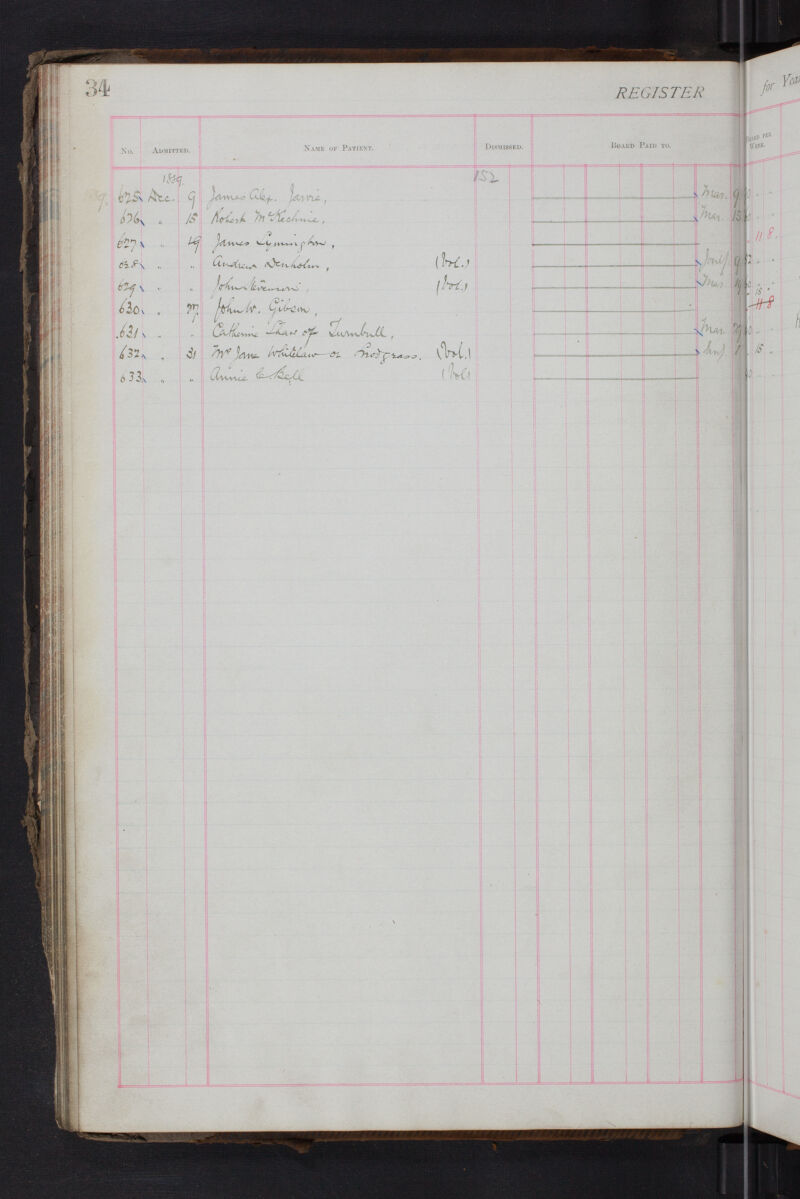 34 REGISTER for
No. Admitted. Name of Patient. Dismissed. Board Paid to. Board per Week.
1889. 152
625 Dec. 9 James Alex. Jarvie, Mar. 9
626 " 15 Robert McKechnie, Mar. 15
627 " 19 James Lymington, 11 8.
628 " " Andrew Denholm, (Vol.) 9 52
629 " " John (Vol.) Mar. 19
630 " 27 John W. Gibson, 15 11 8
631 " " Catherine Shaw or Turnbull, Mar. 29
632 " 31 Mrs Jane Whitelaw or Snodgrass. (Vol.) 15
633 " " Annie C. Bell (Vol.)